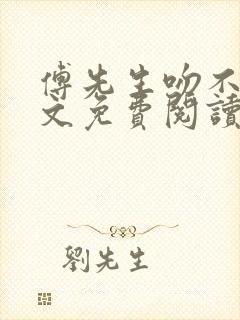 傅先生吻不
文免費閱讀
劉先生